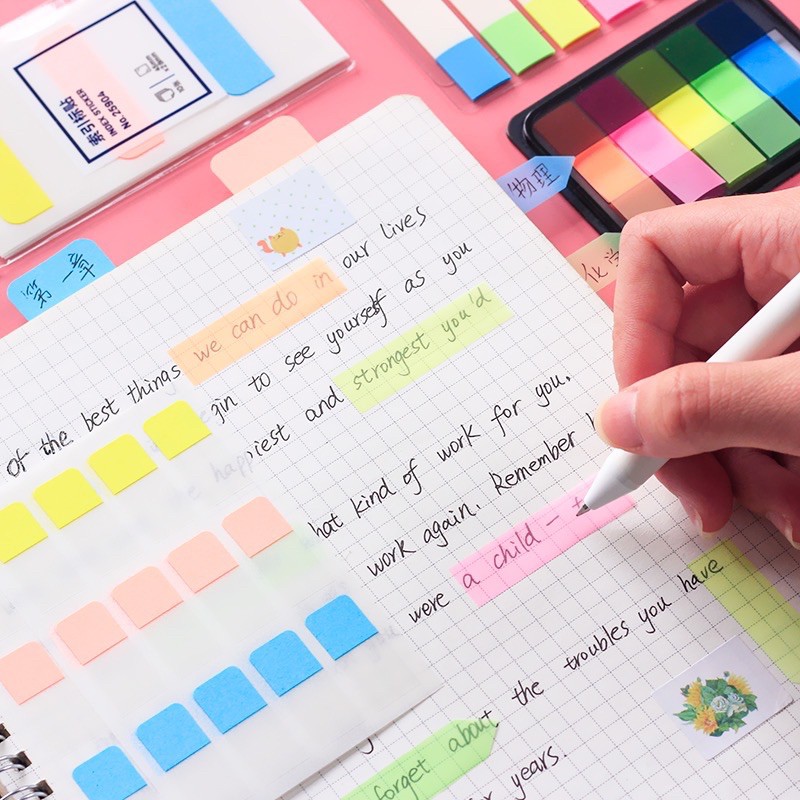 索引标贴
INDEX STICKER
No.25904
第一章
物理
化学
of the best things we can do in our lives
gin to see yourself as you
happiest and strongest you'd
hat kind of work for you.
work again. Remember h
were a child - t
forget about the troubles you have
years.